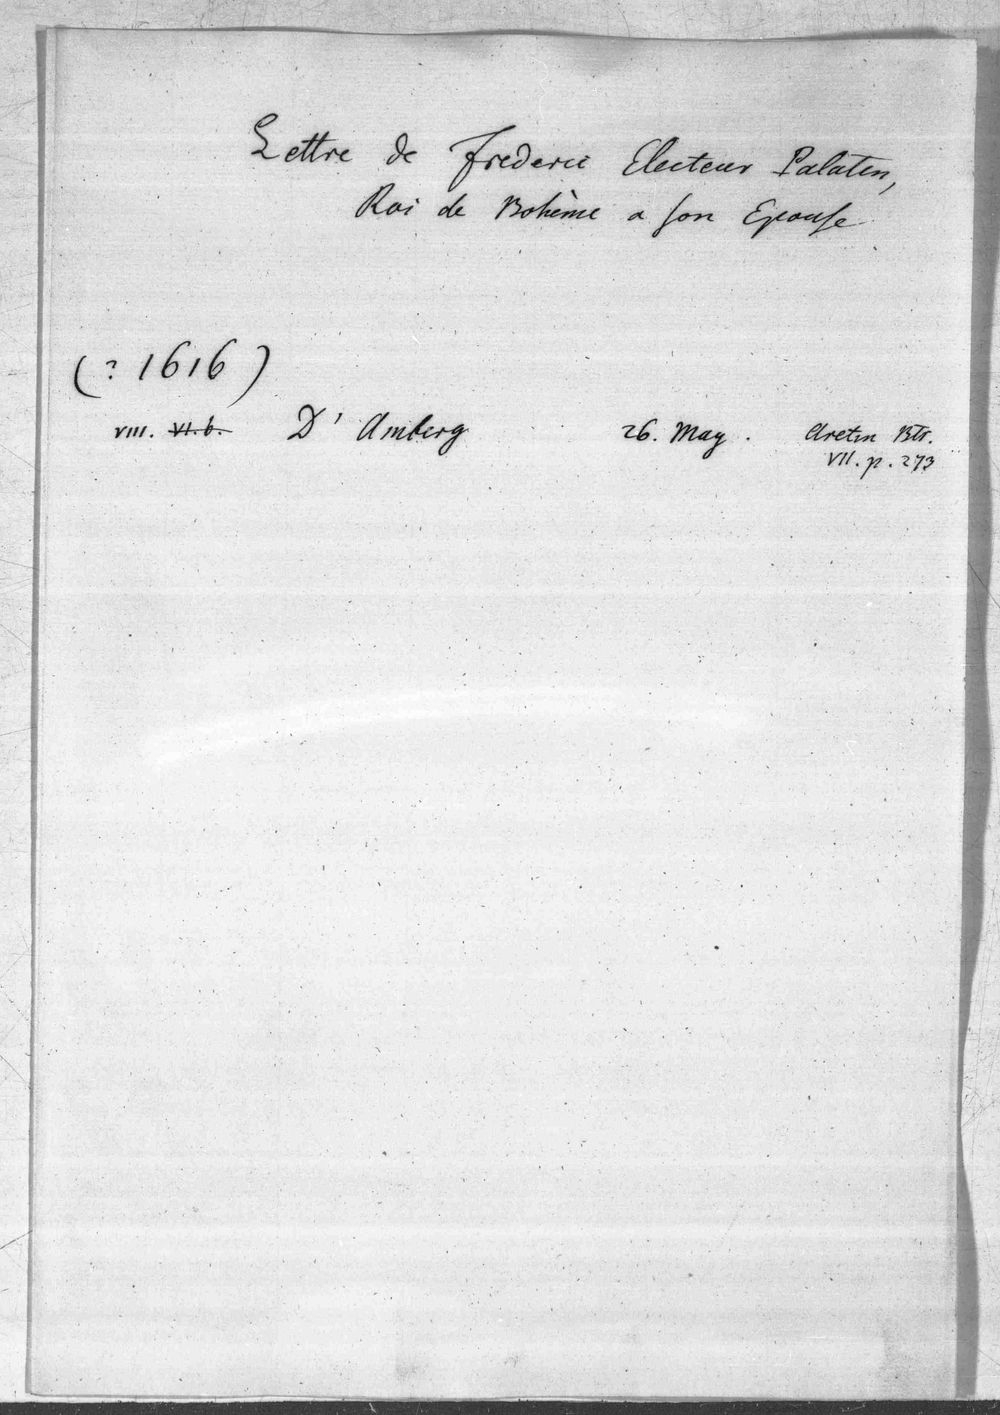 Lettre de Frederic Electeur Palatin,
Roi de Bohème a son Epouse
(? 1616)
VIII. VI. b. D' Amberg 26. May. Aretin Btr.
VII. p. 273